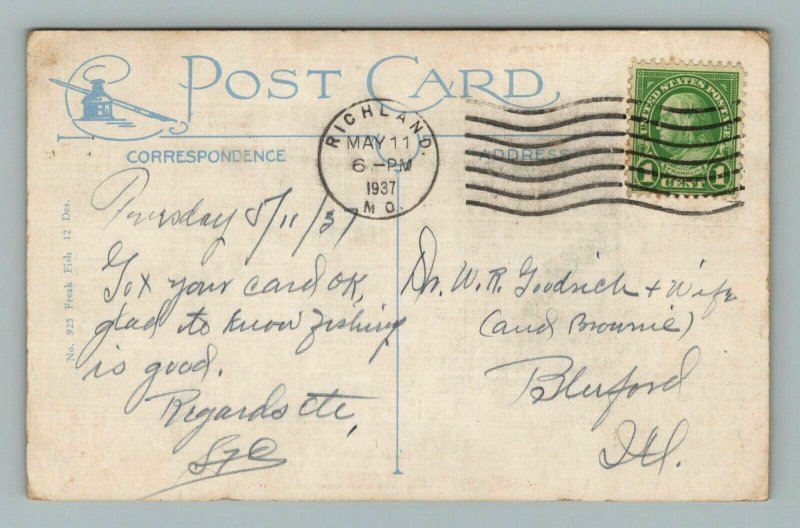 POST CARD
CORRESPONDENCE
ADDRESS
RICHLAND.
MAY 11
6-PM
1937
MO.
UNITED STATES POSTAGE
FRANKLIN
1 CENT 1
No. 925 Freak Fish 12 Des.
Tuesday 5/11/37
Got your card OK,
glad to know fishing
is good.
Regards etc,
Dr. W. R. Goodrich + Wife
(and Brownie)
Ill.